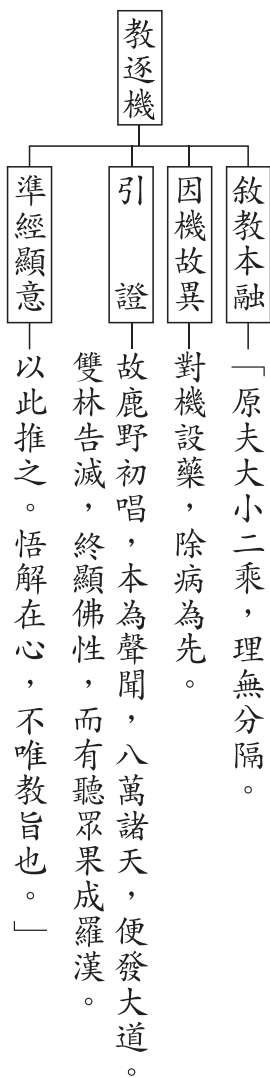 教逐機
敘教本融
「原夫大小二乘，理無分隔。
因機故異
對機設藥，除病為先。
引證
故鹿野初唱，本為聲聞，八萬諸天，便發大道。
雙林告滅，終顯佛性，而有聽眾果成羅漢。
準經顯意
以此推之。悟解在心，不唯教旨也。」